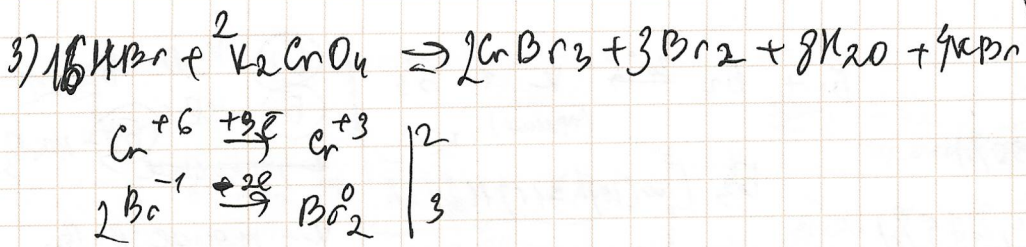 3) 16HBr + 2K₂CrO₄ ⇒ 2CrBr₃ + 3Br₂ + 8H₂O + 4KBr
Cr⁺⁶ +3ē → Cr⁺³ | 2
2Br⁻¹ -2e → Br₂⁰ | 3